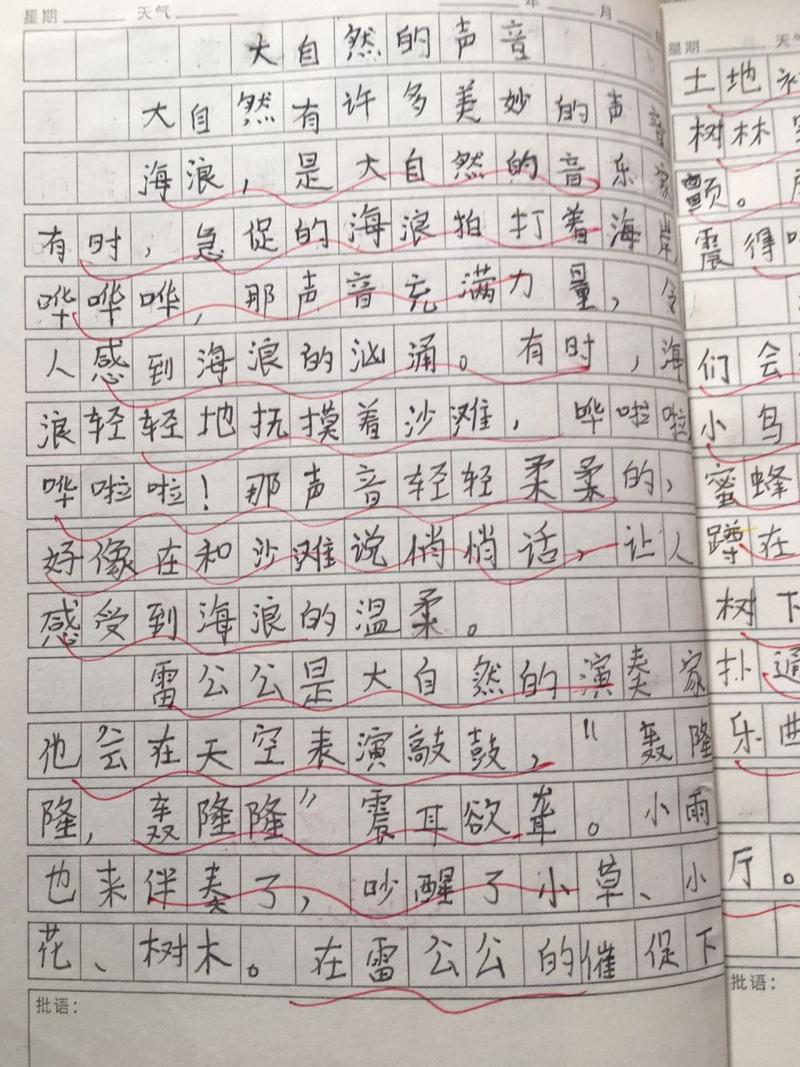 星期 天气 年 月
大自然的声音
大自然有许多美妙的声音
海浪，是大自然的音乐家
有时，急促的海浪拍打着海岸
哗哗哗，那声音充满力量，令
人感到海浪的汹涌。有时，海
浪轻轻地抚摸着沙滩，哗啦啦
哗啦啦！那声音轻轻柔柔的，
好像在和沙滩说悄悄话，让人
感受到海浪的温柔。
雷公公是大自然的演奏家
他会在天空表演敲鼓，“轰隆
隆，轰隆隆”震耳欲聋。小雨
也来伴奏了，吵醒了小草、小
花、树木。在雷公公的催促下
批语：
星期 天气
土地
树林
颤。
震得
们会
小鸟
蜜蜂
蹲在
树下
扑通
乐曲
厅。
批语：